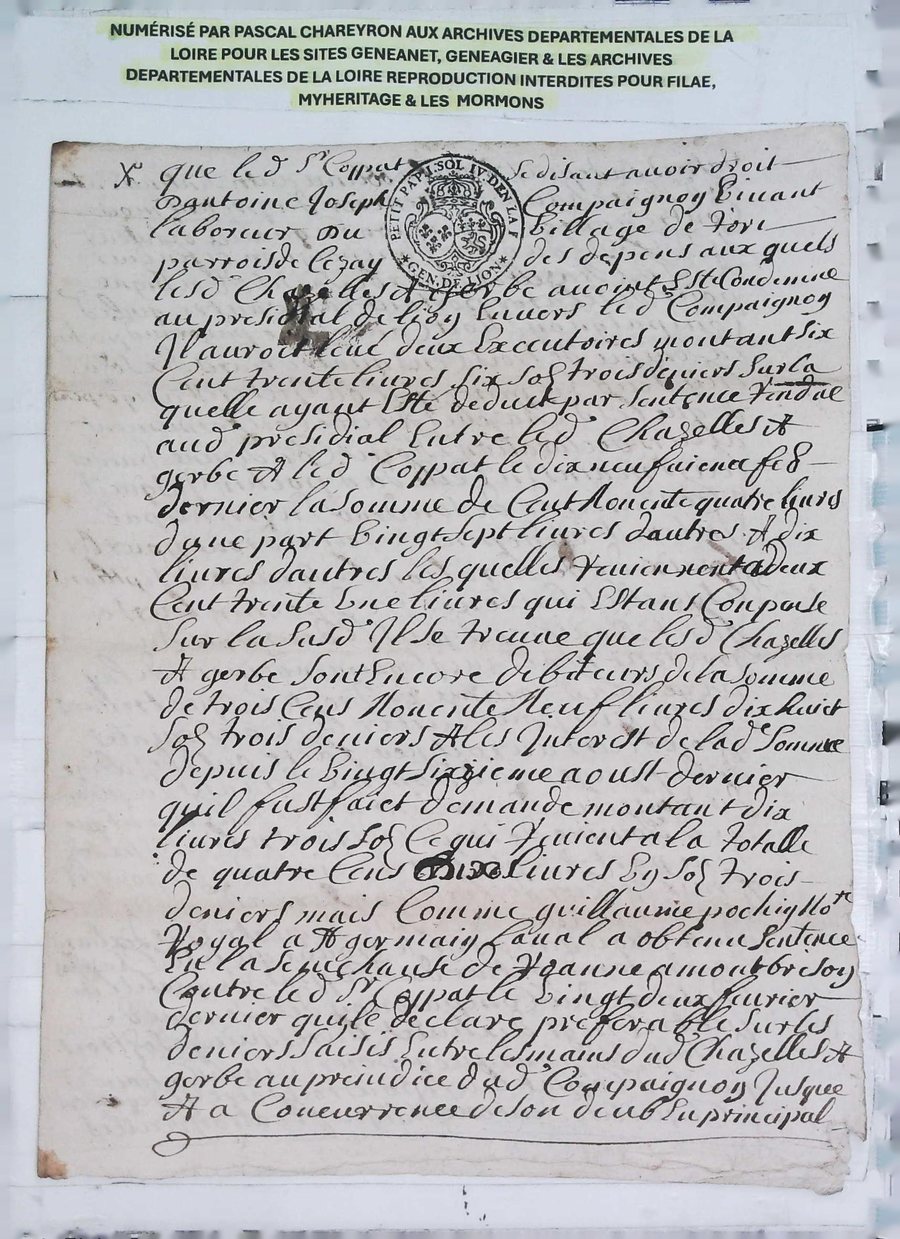 NUMÉRISÉ PAR PASCAL CHAREYRON AUX ARCHIVES DEPARTEMENTALES DE LA
LOIRE POUR LES SITES GENEANET, GENEAGIER & LES ARCHIVES
DEPARTEMENTALES DE LA LOIRE REPRODUCTION INTERDITES POUR FILAE,
MYHERITAGE & LES MORMONS
PETIT PAP. I. SOL IV. DEN. LA F
GEN. DE LION
que led Sr Coppat se disant avoir droit
Dantoine Joseph Compaignon vivant
laboreur du village de
parroisde Cezay des depens aux quels
lesd Chazelles et gerbe avoint Esté Condemne
au presidial de lion Envers led Compaignon
Il auroit levé deux Executoires montant six
Cent trente livres six solz trois deniers sur la
quelle ayant Esté deduit par sentence rendue
aud presidial Entre led Chazelles et
gerbe et led Coppat le dixneufviem
dernier la somme de Cent Nonente quatre livres
dune part vingt sept livres dautres et dix
livres dautres les quelles reviennent a deux
Cent trente une livres qui Estans Conpense
sur la susd Il se treuve que lesd Chazelles
et gerbe sont Encore debiteurs de la somme
de trois Cens Nonente Neuf livres dix huict
solz trois deniers et les Interest de lad somme
depuis le vingt sixzieme aoust dernier
quil fust faict demande montant dix
livres trois solz Ce qui revient a la totalle
de quatre Cens livres un solz trois
deniers mais Comme guillaume pochin Nore
Royal a St germain laval a obtenu sentence
En la senechause de Roanne a montbrison
Contre led Sr Coppat le vingt deux fevrier
dernier qui le declare preferable sur les
deniers saisis Entre les mains dud Chazelles et
gerbe au preiudice dud Compaignon Jusque
et a Concurrence de son deub En principal